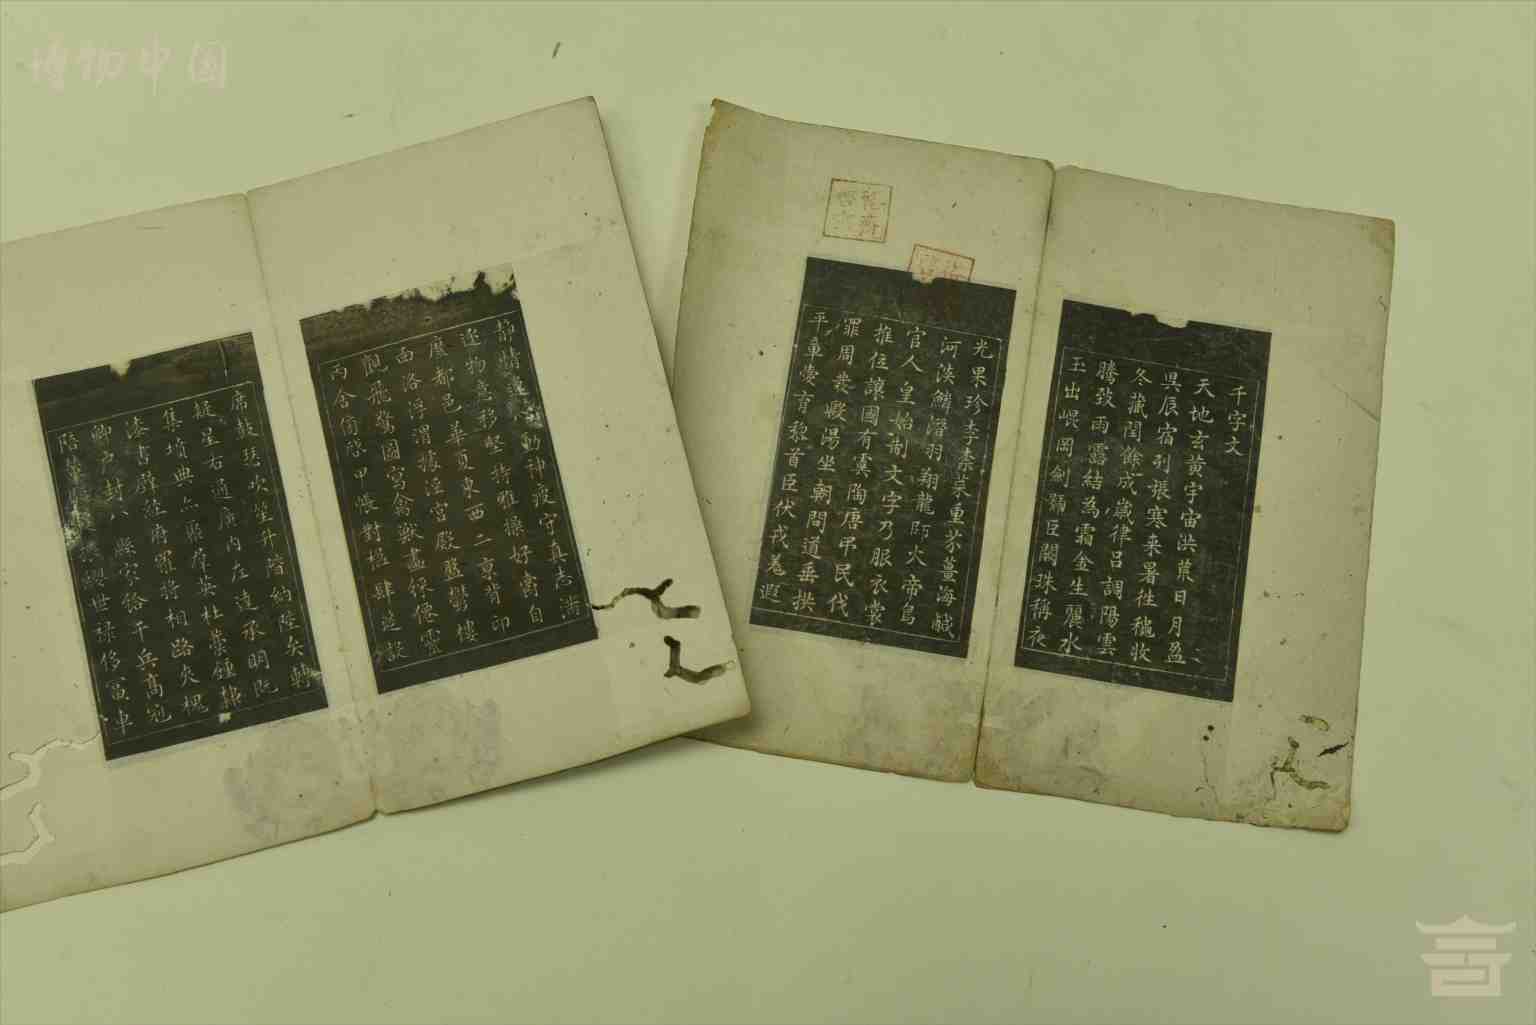 博物中国
千字文
天地玄黃宇宙洪荒日月盈
昃辰宿列張寒来暑往穐收
冬藏閏餘成歲律呂調陽雲
騰致雨露結為霜金生麗水
玉出崐岡劍號巨闕珠稱夜
光果珍李柰菜重芥薑海鹹
河淡鱗潛羽翔龍師火帝鳥
官人皇始制文字乃服衣裳
推位讓國有虞陶唐弔民伐
罪周發殷湯坐朝問道垂拱
平章愛育黎首臣伏戎羌遐
静情逸動神疲守真志滿
逐物意移堅持雅操好爵自
縻都邑華夏東西二京背邙
面洛浮渭據涇宮殿盤鬱樓
觀飛驚圖寫禽獸畫綵僊靈
丙舍傍啓甲帳對楹肆筵設
席鼓瑟吹笙升階納陛弁轉
疑星右通廣内左達承明既
集墳典亦聚群英杜稾鍾隸
漆書壁経府羅將相路夾槐
卿户封八縣家給千兵高冠
陪輦纓世祿侈富車